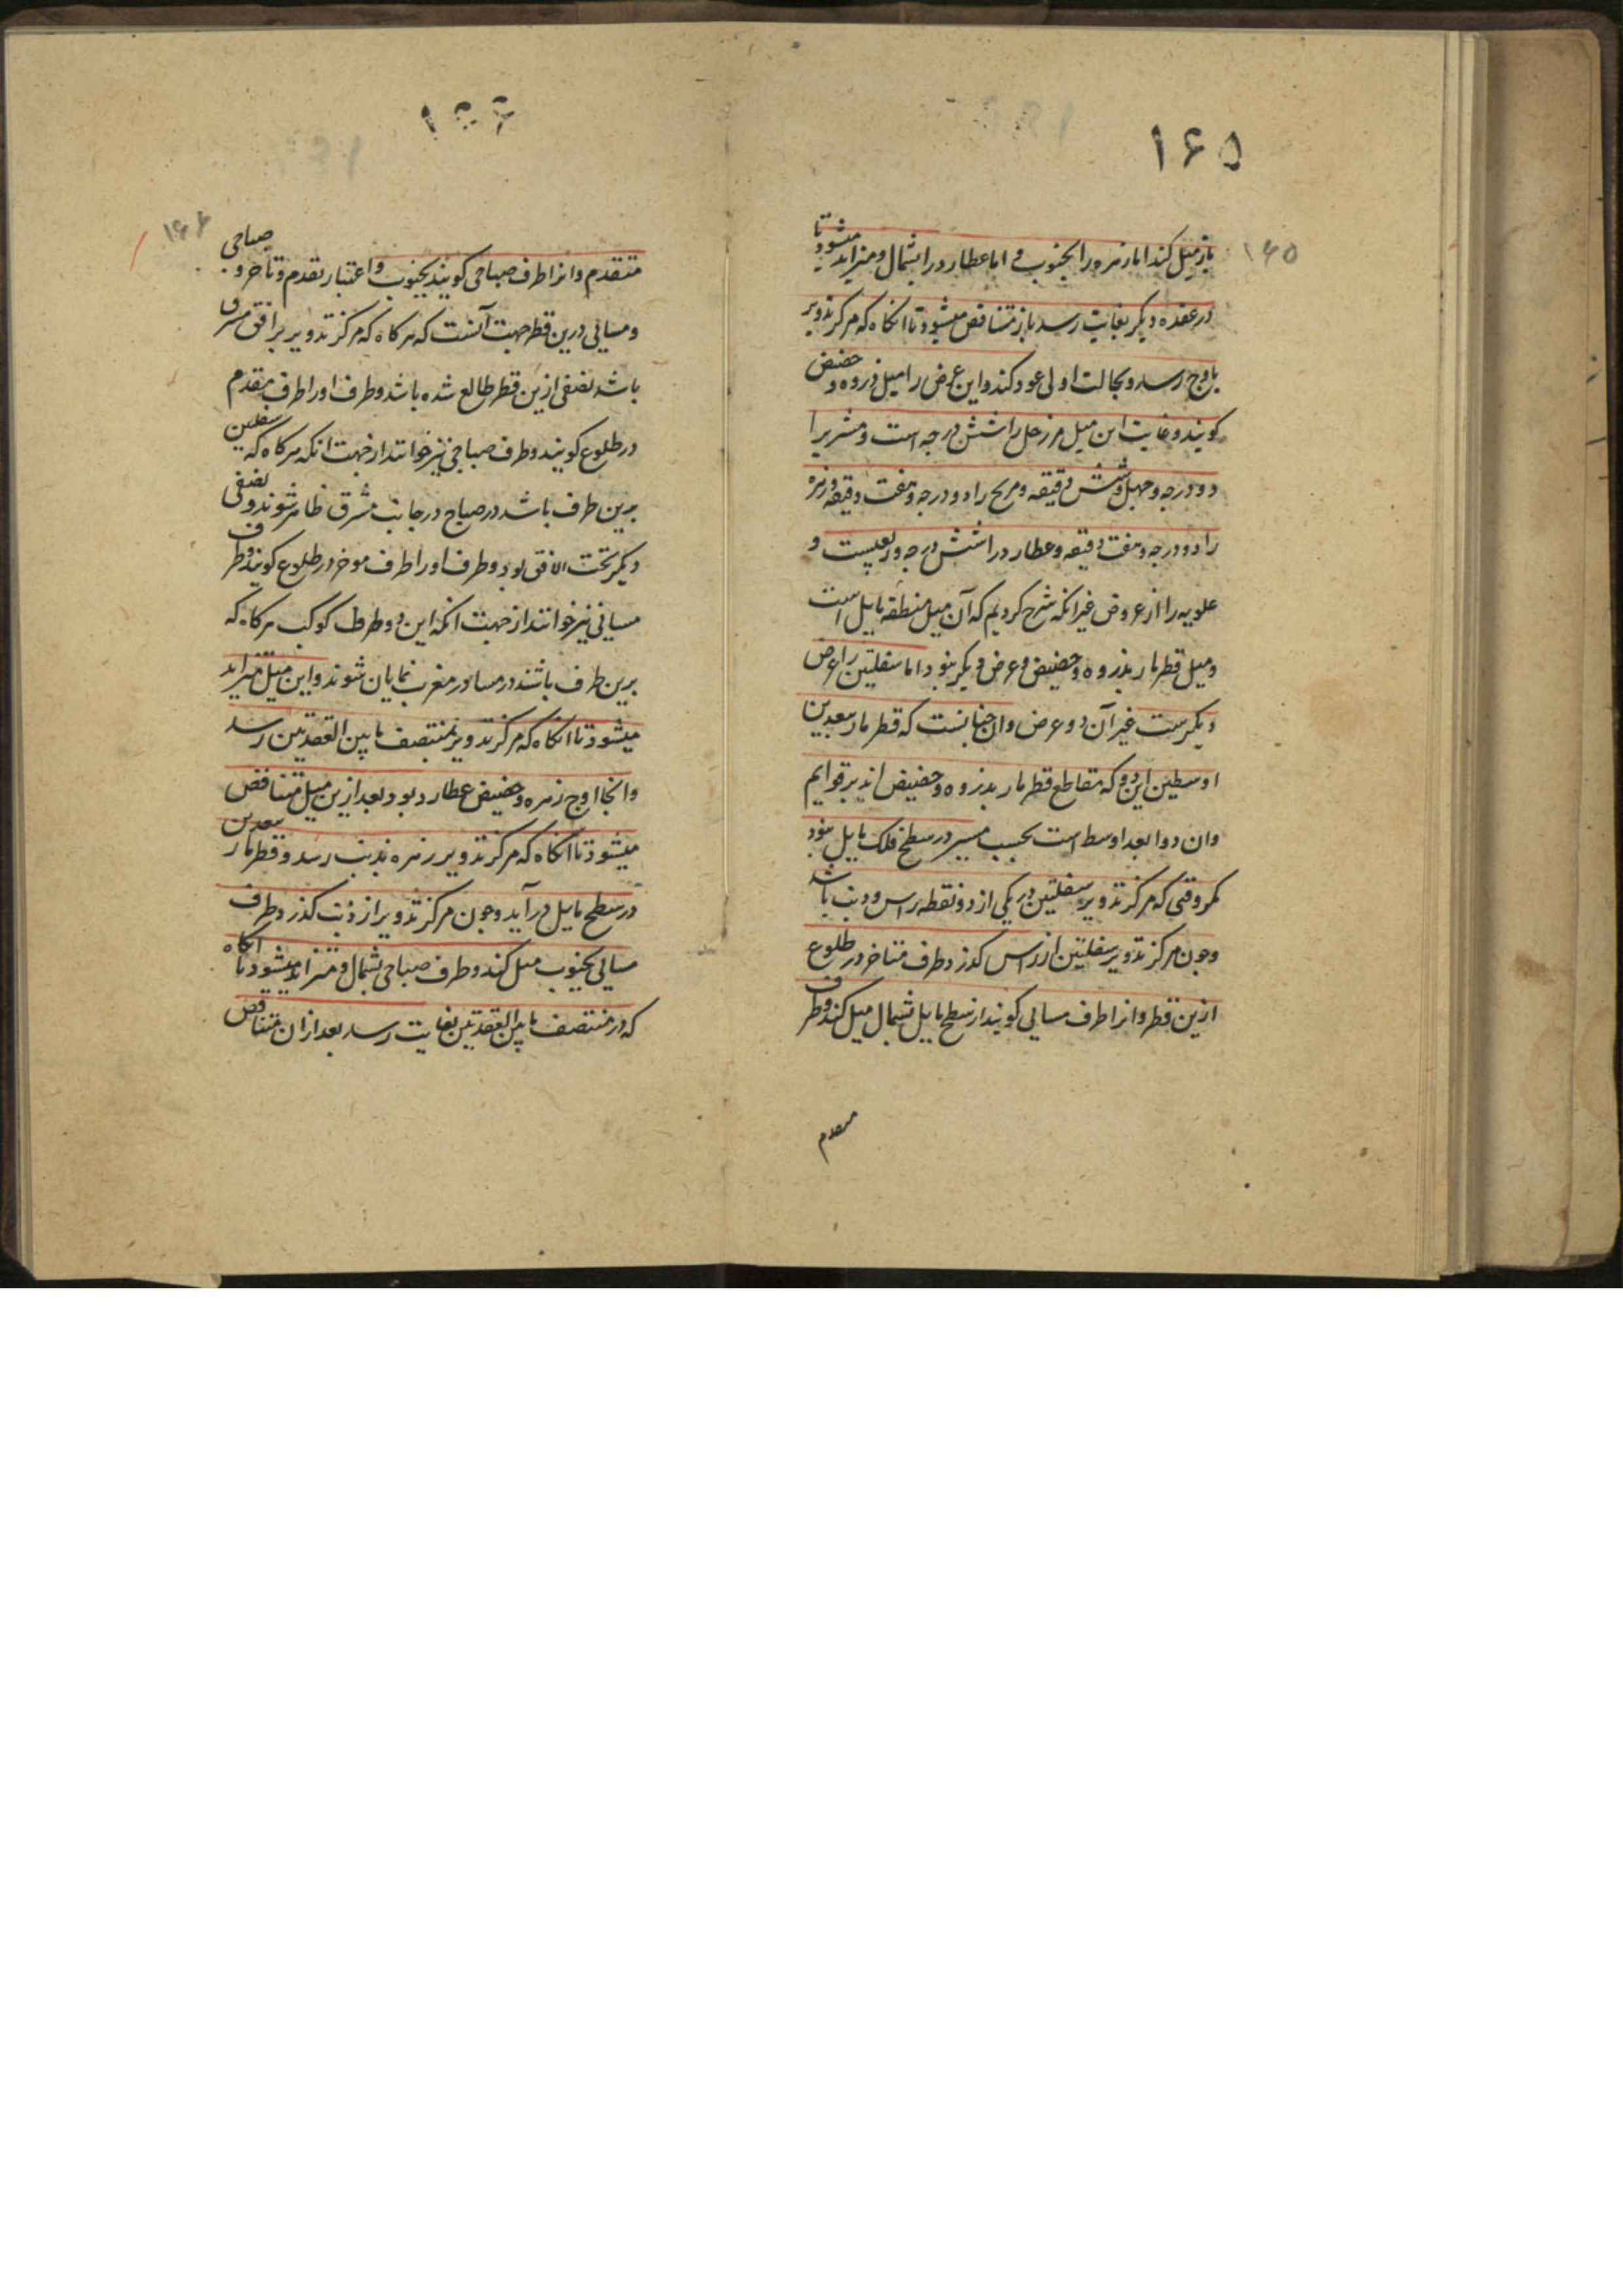 ۱۶۵
۱۶۵
باز میل کند اما زهره را بجنوب و اما عطارد را بشمال و متزاید میشود تا
در عقده دیکر بغایت رسد باز متناقص میشود تا انکاه که مرکز تدویر
باوج رسد و بحالت اولی عود کند و این عرض را میل ذروه و حضیض
کویند و غایت این میل مر زحل را شش درجه است و مشتریرا
دو درجه و چهل و شش دقیقه و مریخ را دو درجه و هفت دقیقه و زهره
را دو درجه و هفت دقیقه و عطارد را شش درجه و ربعیست و
علویه را از عروض غیر انکه شرح کردیم که آن میل منطقه مایل است
و میل قطر مار بذروه و حضیض و عرض دیکر نبود اما سفلتین را عرض
دیکرست غیر آن دو عرض و ان چنانست که قطر مار ببعدین
اوسطین این دو که مقاطع قطر مار بذروه و حضیض اند بر قوایم
و ان دو ابعد اوسط است بحسب مسیر در سطح فلک مایل نبود
مکر وقتی که مرکز تدویر سفلتین در یکی از دو نقطه راس و ذنب باشد
و چون مرکز تدویر سفلتین از راس کذرد طرف متاخر در طلوع
ازین قطر و انرا طرف مسایی کویند از سطح مایل بشمال میل کند و طرف
متقدم
۱۶۶
۱۶۶
متقدم و انرا طرف صباحی کویند بجنوب و اعتبار تقدم و تاخر و صباحی
و مسایی درین قطر جهت آنست که هر کاه که مرکز تدویر بر افق مشرق
باشد نصفی ازین قطر طالع شده باشد و طرف او را طرف متقدم
در طلوع کویند و طرف صباحی نیز خوانند از جهت انکه هر کاه که سفلین
برین طرف باشد در صباح در جانب مشرق ظاهر شوند و نصفی
دیکر تحت الافق بود و طرف او را طرف موخر در طلوع کویند و طرف
مسایی نیز خوانند از جهت انکه این دو طرف کوکب هر کاه که
برین طرف باشند در مسا در مغرب نمایان شوند و این میل متزاید
میشود تا انکاه که مرکز تدویر بمنتصف ما بین العقدتین رسد
و انجا اوج زهره و حضیض عطارد بود و بعد ازین میل متناقص
میشود تا انکاه که مرکز تدویر زهره بذنب رسد و قطر مار ببعدین
در سطح مایل در آید و چون مرکز تدویر از ذنب کذرد طرف
مسایی بجنوب میل کند و طرف صباحی بشمال و متزاید میشود تا انکاه
که در منتصف ما بین العقدتین بغایت رسد بعد از ان متناقص